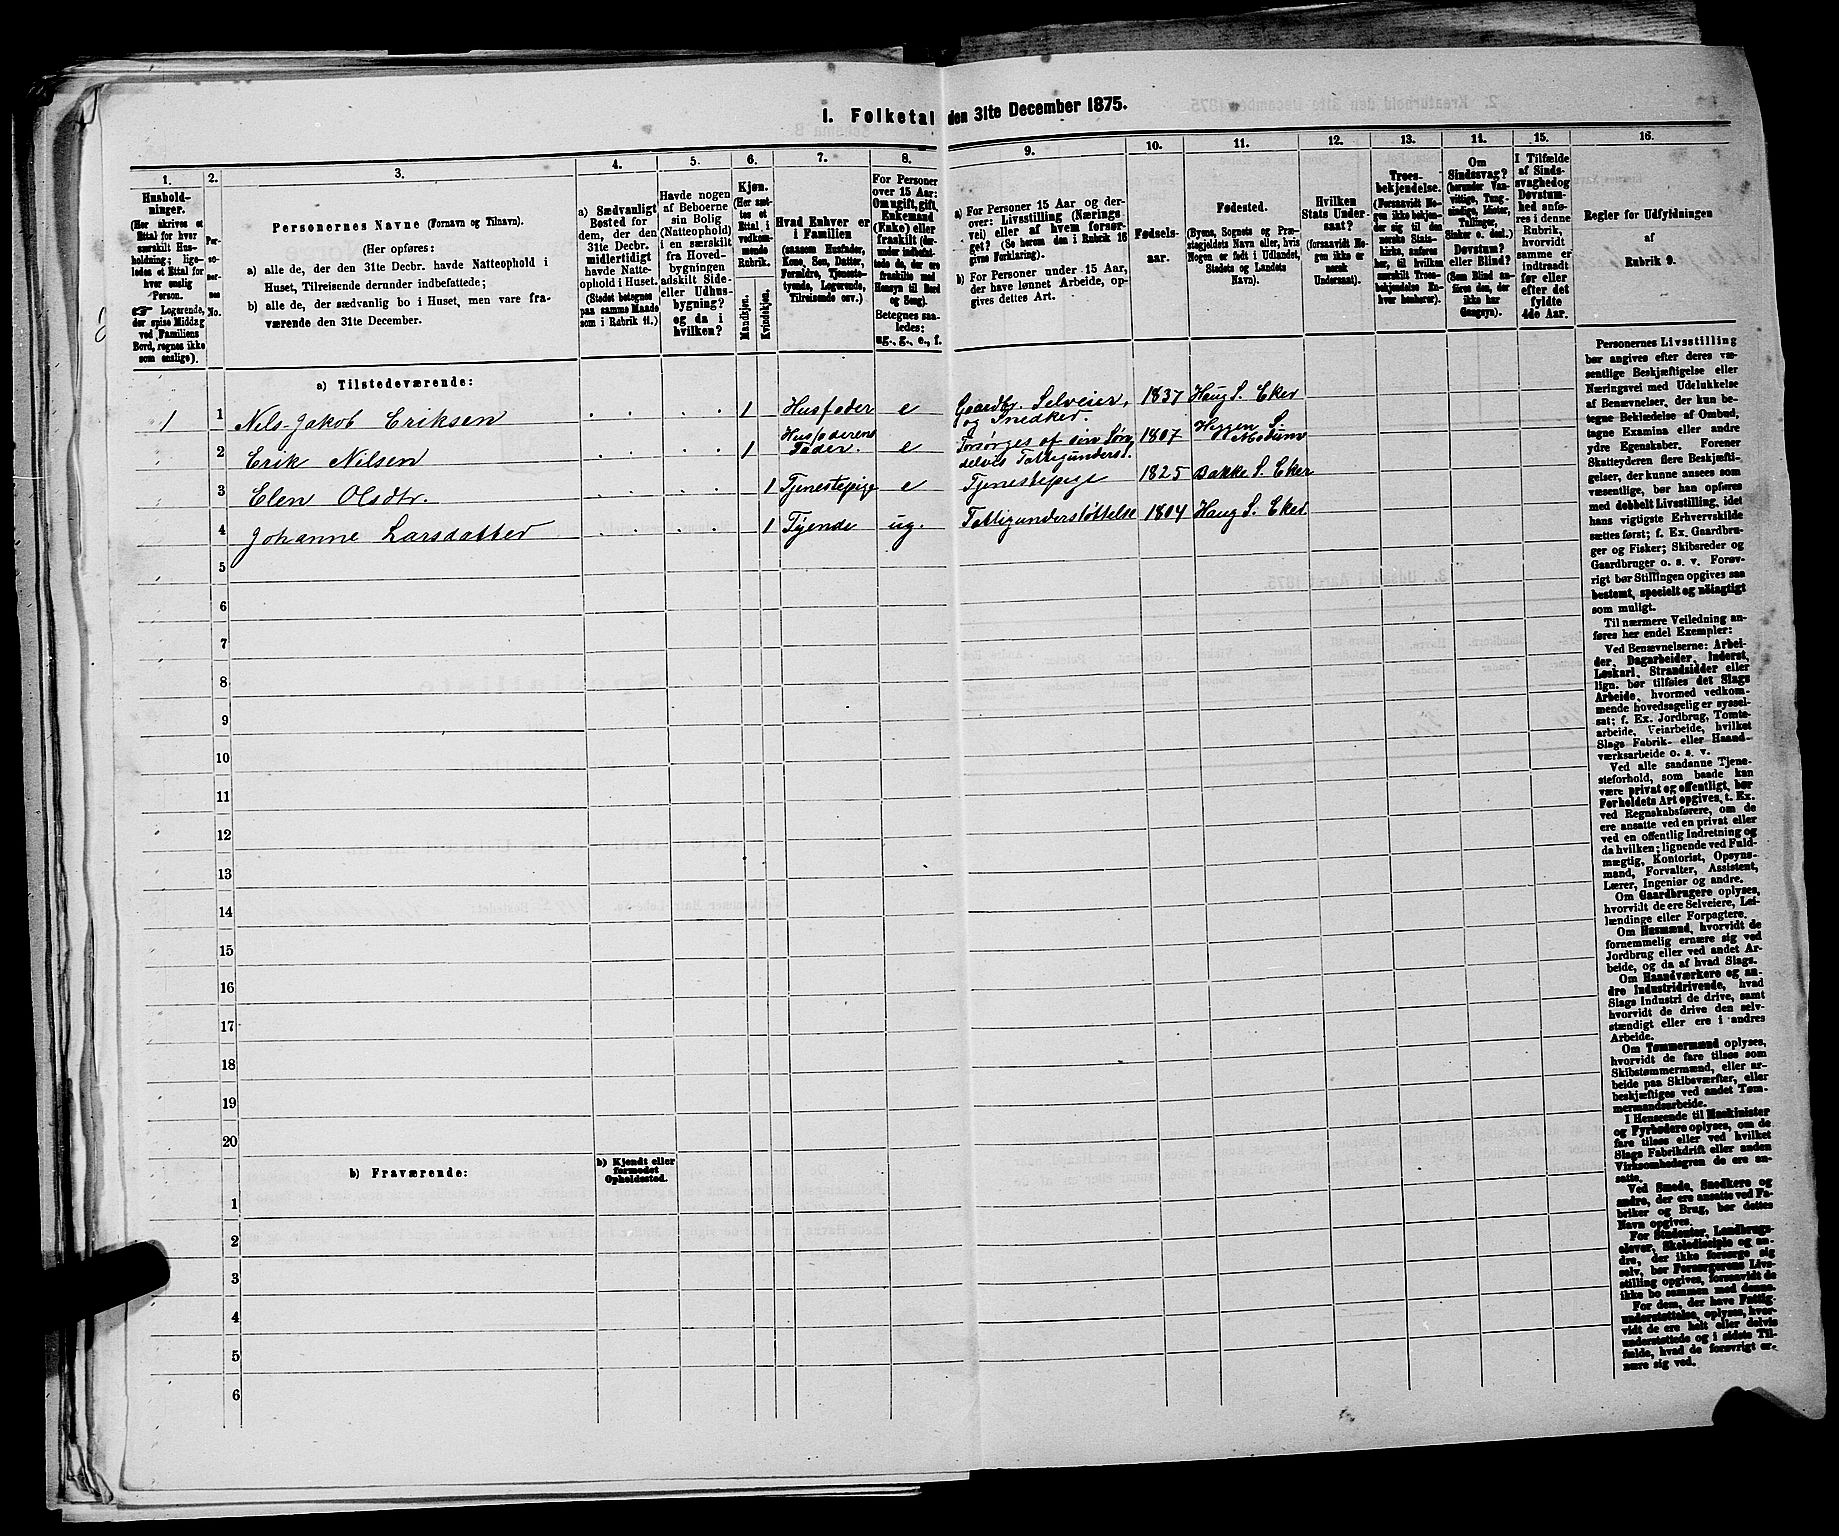 I. Folketal den 31te December 1875.
1.
Husholdninger.
(Her skrives et
Ettal for hver
særskilt Husholdning; ligeledes et Ettal for
hver enslig
Person.
☞ Logerende,
der spise Middag
ved Familiens
Bord, regnes ikke
som enslige).
2.
Personernes
No.
3.
Personernes Navne (Fornavn og Tilnavn).
(Her opføres:
a) alle de, der den 31te Decbr. havde Natteophold i
Huset, Tilreisende derunder indbefattede;
b) alle de, der sædvanlig bo i Huset, men vare fraværende den 31te December.
4.
a) Sædvanligt
Bosted for
dem, der den
31te Decbr.
midlertidigt
havde Natteophold i Huset.
(Stedet betegnes
paa samme Maade
som i Rubrik 11.)
5.
Havde nogen
af Beboerne
sin Bolig
(Natteophold)
i en særskilt
fra Hovedbygningen
adskilt Side-
eller Udhusbygning?
og da i
hvilken?
6.
Kjøn.
(Her sættes et
Ettal i
vedkommende
Rubrik.
Mandkjøn.
Kvindekjøn.
7.
Hvad Enhver er
i Familien
(saasom Husfader,
Kone, Søn, Datter,
Forældre, Tjenestetyende, Logerende,
Tilreisende osv.)
8.
For Personer
over 15 Aar:
Om ugift, gift,
Enkemand
(Enke) eller
fraskilt (derunder indbefattede de, der ere
fraskilte med
Hensyn til Bord
og Seng).
Betegnes saaledes:
ug., g., e., f.
9.
a) For Personer 15 Aar og derover: Livsstilling (Næringsvei) eller af hvem forsørget? (Se herom den i Rubrik 16
givne Forklaring).
b) For Personer under 15 Aar,
der have lønnet Arbeide, opgives dettes Art.
10.
Fødselsaar.
11.
Fødested.
(Byens, Sognets og Præstegjeldets Navn eller, hvis
Nogen er født i Udlandet,
Stedets og Landets
Navn).
12.
Hvilken
Stats Undersaat?
(forsaavidt Nogen ikke er
norsk
Undersaat).
13.
Troesbekjendelse.
(Forsaavidt Nogen ikke bekjender sig til
den norske
Statskirke, anføres
her, til hvilken
særskilt Troesbekjendelse Enhver henhører).
14.
Om
Sindssvag?
(herunder Vanvittige, Tungsindige, Idioter,
Tullinger,
Sinker o. desl.)
Døvstum?
eller Blind?
(Som Blind anføres den, der
ikke har
Gangsyn).
15.
I Tilfælde
af Sindssvaghed og
Døvstumhed anføres i denne
Rubrik,
hvorvidt
samme er
indtraadt
før eller
efter det
fyldte
4de Aar.
16.
Regler for Udfyldningen
af
Rubrik 9.
a) Tilstedeværende:
1 1 Nels-Jakob Eriksen 1 Husfader e Gaardbr. Selveier, og Snedker 1837 Haug S. Eker
2 Erik Nilsen 1 Husfaderens Fader. e Forsørges af sin Søn, delvis Fattigunderst. 1807 Heggen S. Modum
3 Elen Olsdtr. 1 Tjenestepige e Tjenestepige 1825 Bakke S. Eker
4 Johanne Larsdatter 1 Tyende ug. Fattigunderstøttelse 1804 Haug S. Eker
5
6
7
8
9
10
11
12
13
14
15
16
17
18
19
20
b) Fraværende:
b) Kjendt eller
formodet
Opholdssted.
1
2
3
4
5
6
Personernes Livsstilling
bør angives efter deres væsentlige Beskjæftigelse eller
Næringsvei med Udelukkelse
af Benævnelser, der kun betegne Beklædelse af Ombud,
tagne Examina eller andre
ydre Egenskaber. Forener
Skatteyderen flere Beskjæftigelser, der kunne ansees som
væsentlige, bør han opføres
med dobbelt Livsstilling, idet
hans vigtigste Erhvervskilde
sættes først; f. Ex. Gaardbruger og Fisker; Skibsreder og
Gaardbruger o. s. v. Forøvrigt bør Stillingen opgives saa
bestemt, specielt og nøiagtigt
som muligt.
Til nærmere Veiledning anføres her endel Exempler:
Ved Benævnelserne: Arbeider, Dagarbeider, Inderst,
Løskarl, Strandsidder eller
lign. bør tilføies det Slags
Arbeide, hvormed vedkommende hovedsagelig er sysselsat; f. Ex. Jordbrug, Tomtearbeide, Veiarbeide, hvilket
Slags Fabrik- eller Haandværksarbeide o. s. v.
Ved alle saadanne Tjenesteforhold, som baade kan
være privat og offentligt, bør
Forholdets Art opgives, t. Ex.
ved Regnskabsførere, om de
ere ansatte ved en privat eller
ved en offentlig Indretning og
da hvilken; lignende ved Fuldmægtig, Kontorist, Opsynsmand, Forvalter, Assistent,
Lærer, Ingeniør og andre.
Om Gaardbrugere oplyses,
hvorvidt de ere Selveiere, Leilændinge eller Forpagtere.
Om Husmænd, hvorvidt de
fornemmelig ernære sig ved
Jordbrug eller ved andet Arbeide, og da af hvad Slags.
Om Haandværkere og andre Industridrivende, hvad
Slags Industri de drive, samt
hvorvidt de drive den selvstændigt eller ere i andres
Arbeide.
Om Tømmermænd oplyses,
hvorvidt de fare tilsøs som
Skibstømmermænd, eller arbeide paa Skibsværfter, eller
beskjæftiges ved andet Tømmermandsarbeide.
I Henseende til Maskinister
og Fyrbødere oplyses, om de
fare tilsøs eller ved hvilket
Slags Fabrikdrift eller anden
Virksomhedsgren de ere ansatte.
Ved Smede, Snedkere og
andre, der ere ansatte ved Fabriker og Brug, bør dettes
Navn opgives.
For Studenter, Landbrugselever, Skoledisciple og andre, der ikke forsørge sig
selv, bør Forsørgerens Livsstilling opgives, forsaavidt de
ikke bo sammen med denne.
For dem, der have Fattigunderstøttelse, oplyses, hvorvidt de ere helt eller delvis
understøttede og i sidste Tilfælde, hvad de forøvrigt ernære sig ved.